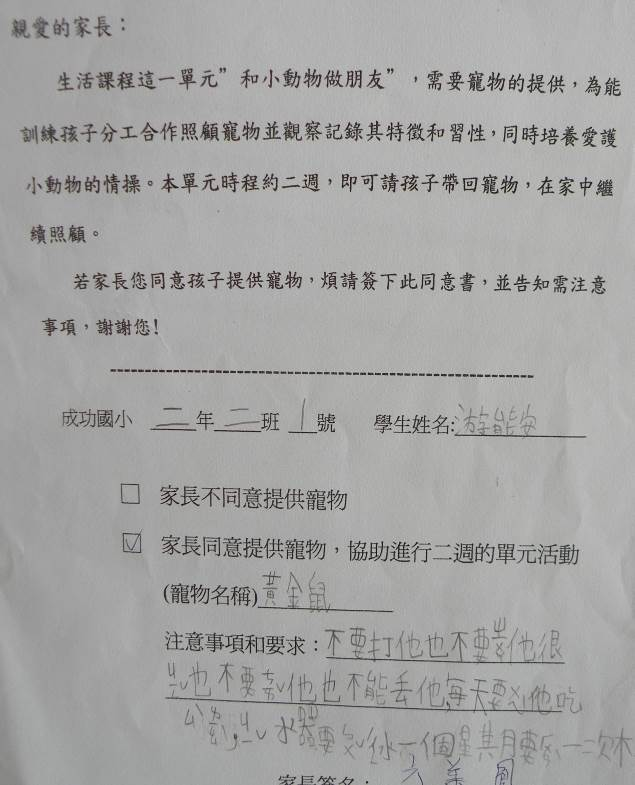 親愛的家長：
生活課程這一單元”和小動物做朋友”，需要寵物的提供，為能
訓練孩子分工合作照顧寵物並觀察記錄其特徵和習性，同時培養愛護
小動物的情操。本單元時程約二週，即可請孩子帶回寵物，在家中繼
續照顧。
若家長您同意孩子提供寵物，煩請簽下此同意書，並告知需注意
事項，謝謝您!
成功國小 二年二班1號 學生姓名:游能安
□ 家長不同意提供寵物
☑ 家長同意提供寵物，協助進行二週的單元活動
(寵物名稱)黃金鼠
注意事項和要求：不要打他也不要 他很
也不要 他也不能丟他,每天要 他吃
水 要 水一個星其月要 一次木
家長簽名：